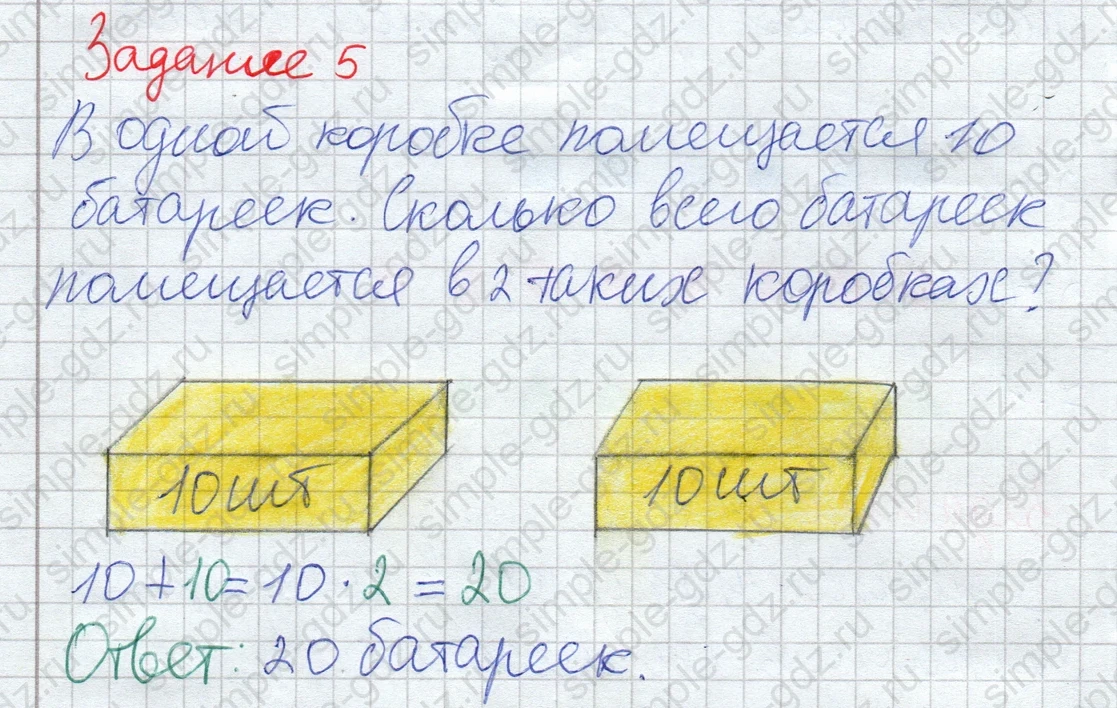 Задание 5
В одной коробке помещается 10
батареек. Сколько всего батареек
помещается в 2 таких коробках?
10 шт 10 шт
10+10=10·2=20
Ответ: 20 батареек.
simple-gdz.ru